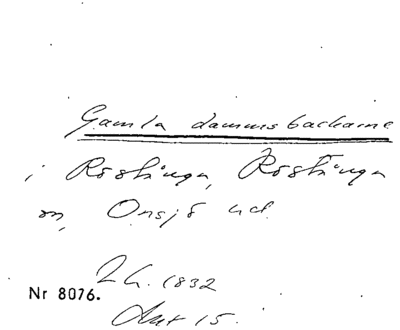 Gamla dammsbackarne
i Röstånga, Röstånga
sn, Onsjö hd.
2 h. 1832
Nr 8076.
Akt 15.